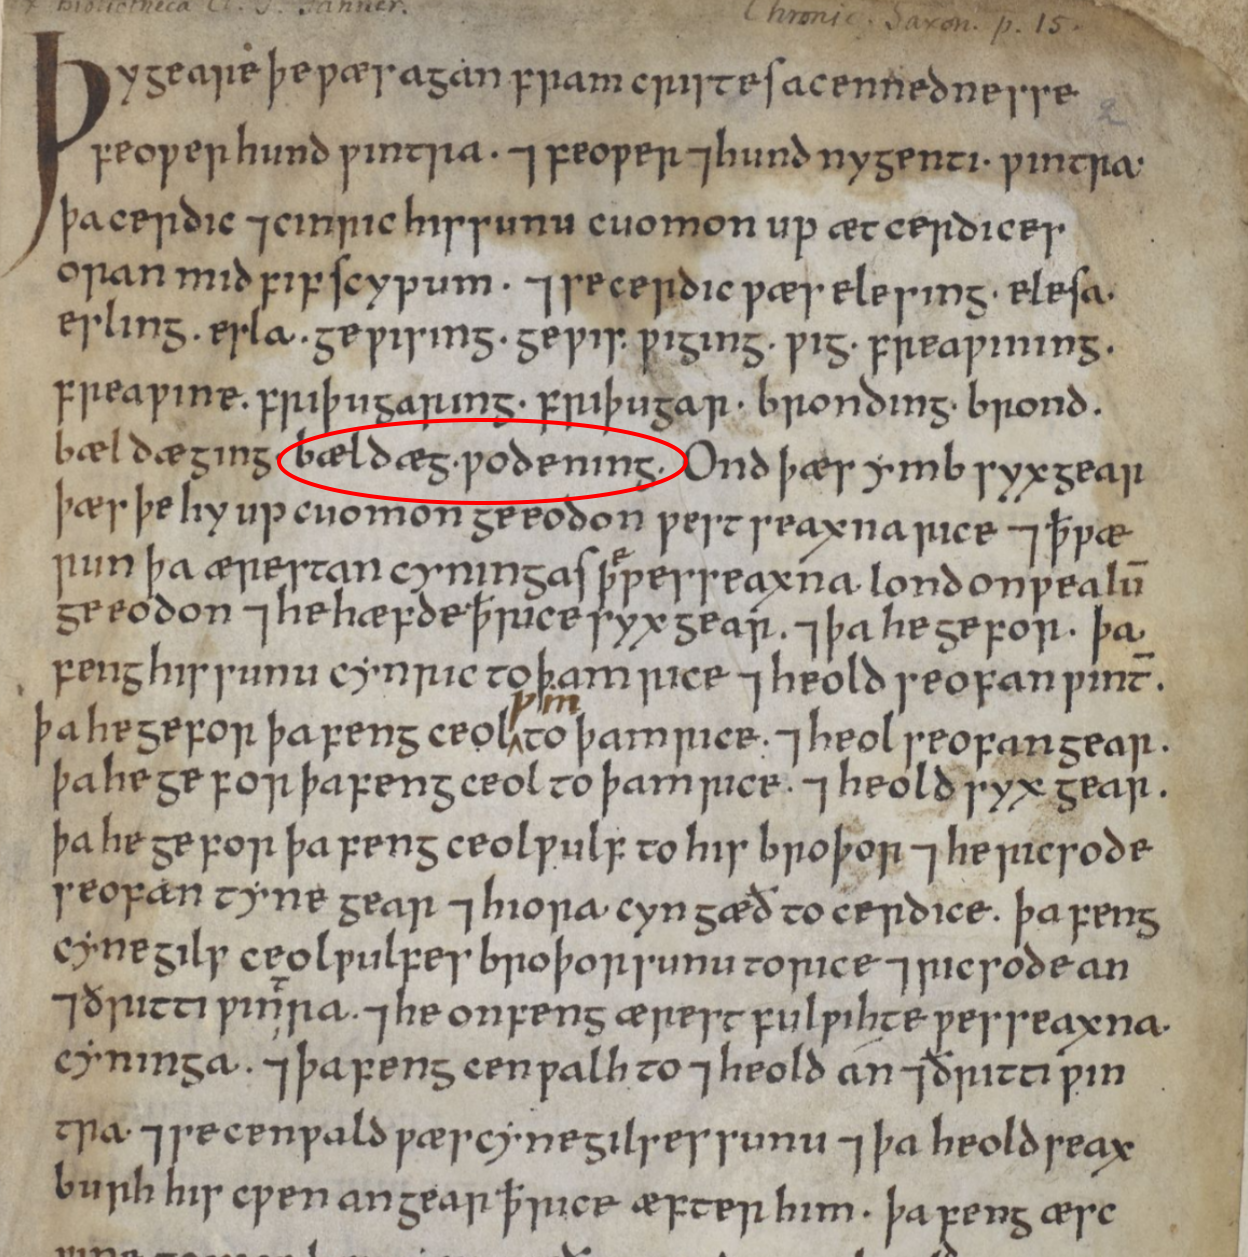 Bibliotheca C. S. Tanner.
Chronic. Saxon. p. 15.
Þy geare þe ƿæs agan fram cristes acennednesse
2
feoƿer hund ƿintra · ⁊ feoƿer ⁊ hund nygenti · ƿintra ·
þa cerdic ⁊ cinric his sunu cuomon up æt cerdices
oran mid fif scypum · ⁊ se cerdic ƿæs elesing · elesa ·
esling · esla · geƿising · geƿis · ƿiging · ƿig · freaƿining ·
freaƿine · friþugaring · friþugar · bronding · brond ·
bældæging bældæg · ƿodening · Ond þæs ẏmb syx gear
þæs þe hy up cuomon geeodon ƿestseaxna rice ⁊ þ̄ ƿæ
run þa ærestan cẏningas þ̄e ƿesseaxna londonƿealū
geeodon ⁊ he hæfde þ̄ rice syx gear · ⁊ þa he gefor · þa
feng his sunu cẏnric to þam rice ⁊ heold seofan ƿint̄ ·
ƿm
þa he gefor þa feng ceol to þam rice · ⁊ heol seofan gear ·
þa he gefor þa feng ceol to þam rice · ⁊ heold syx gear ·
þa he gefor þa feng ceolƿulf to his broþor ⁊ he ricsode
seofan tẏne gear ⁊ hiora cyn gæð to cerdice · þa feng
cẏnegils ceolƿulfes broþor sunu to rice ⁊ ricsode an
⁊ ðritti ƿintra · ⁊ he onfeng ærest fulƿihte ƿesseaxna ·
cẏninga · ⁊ þa feng cenƿalh to ⁊ heold an ⁊ ðritti ƿin
tra · ⁊ se cenƿald ƿæs cẏnegilses sunu ⁊ þa heold seax
burh his cƿen an gear þ̄ rice æfter him · þa feng æsc